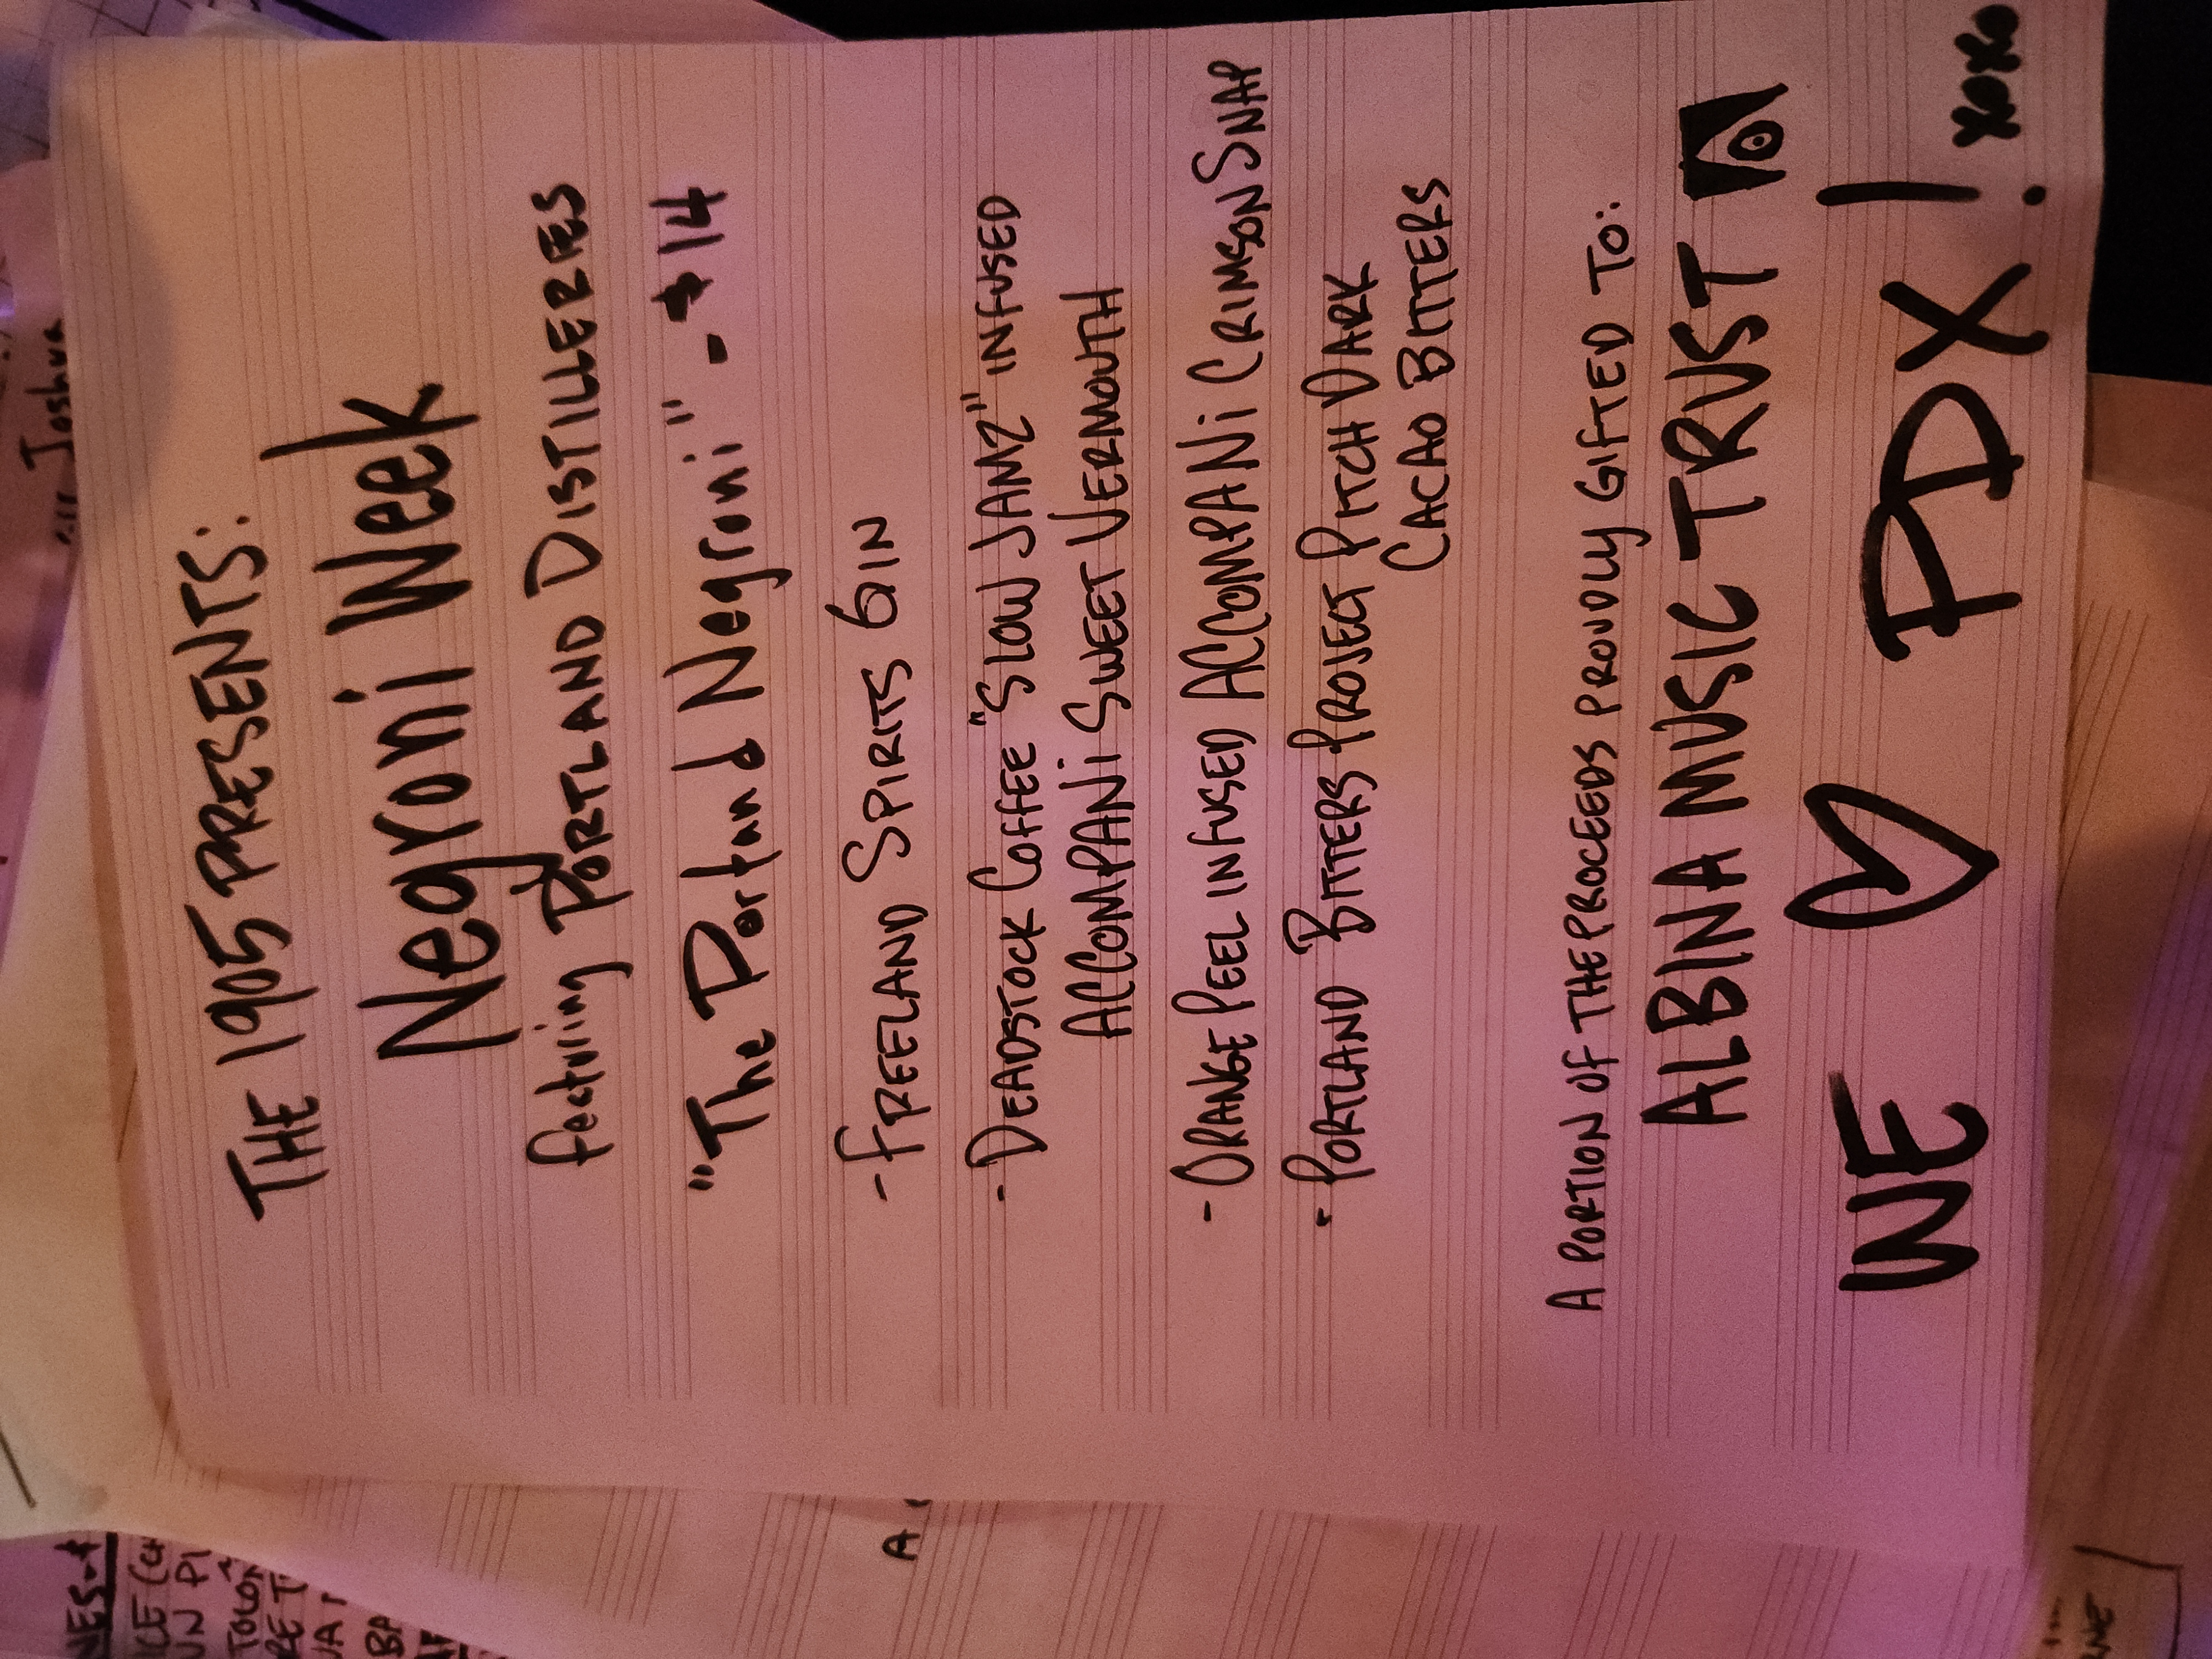 THE 1905 PRESENTS:
Negroni Week
featuring PORTLAND DISTILLERIES
"The Portland Negroni" - $14
- FREELAND SPIRITS GIN
- DEADSTOCK COFFEE "SLOW JAMZ" INFUSED
ACCOMPANi SWEET VERMOUTH
- ORANGE PEEL INFUSED ACCOMPANi CRIMSON SNAP
- PORTLAND BITTERS PROJECT PITCH DARK
CACAO BITTERS
A PORTION OF THE PROCEEDS PROUDLY GIFTED TO:
ALBINA MUSIC TRUST
WE ♡ PDX!
xoxo
Joshua
A